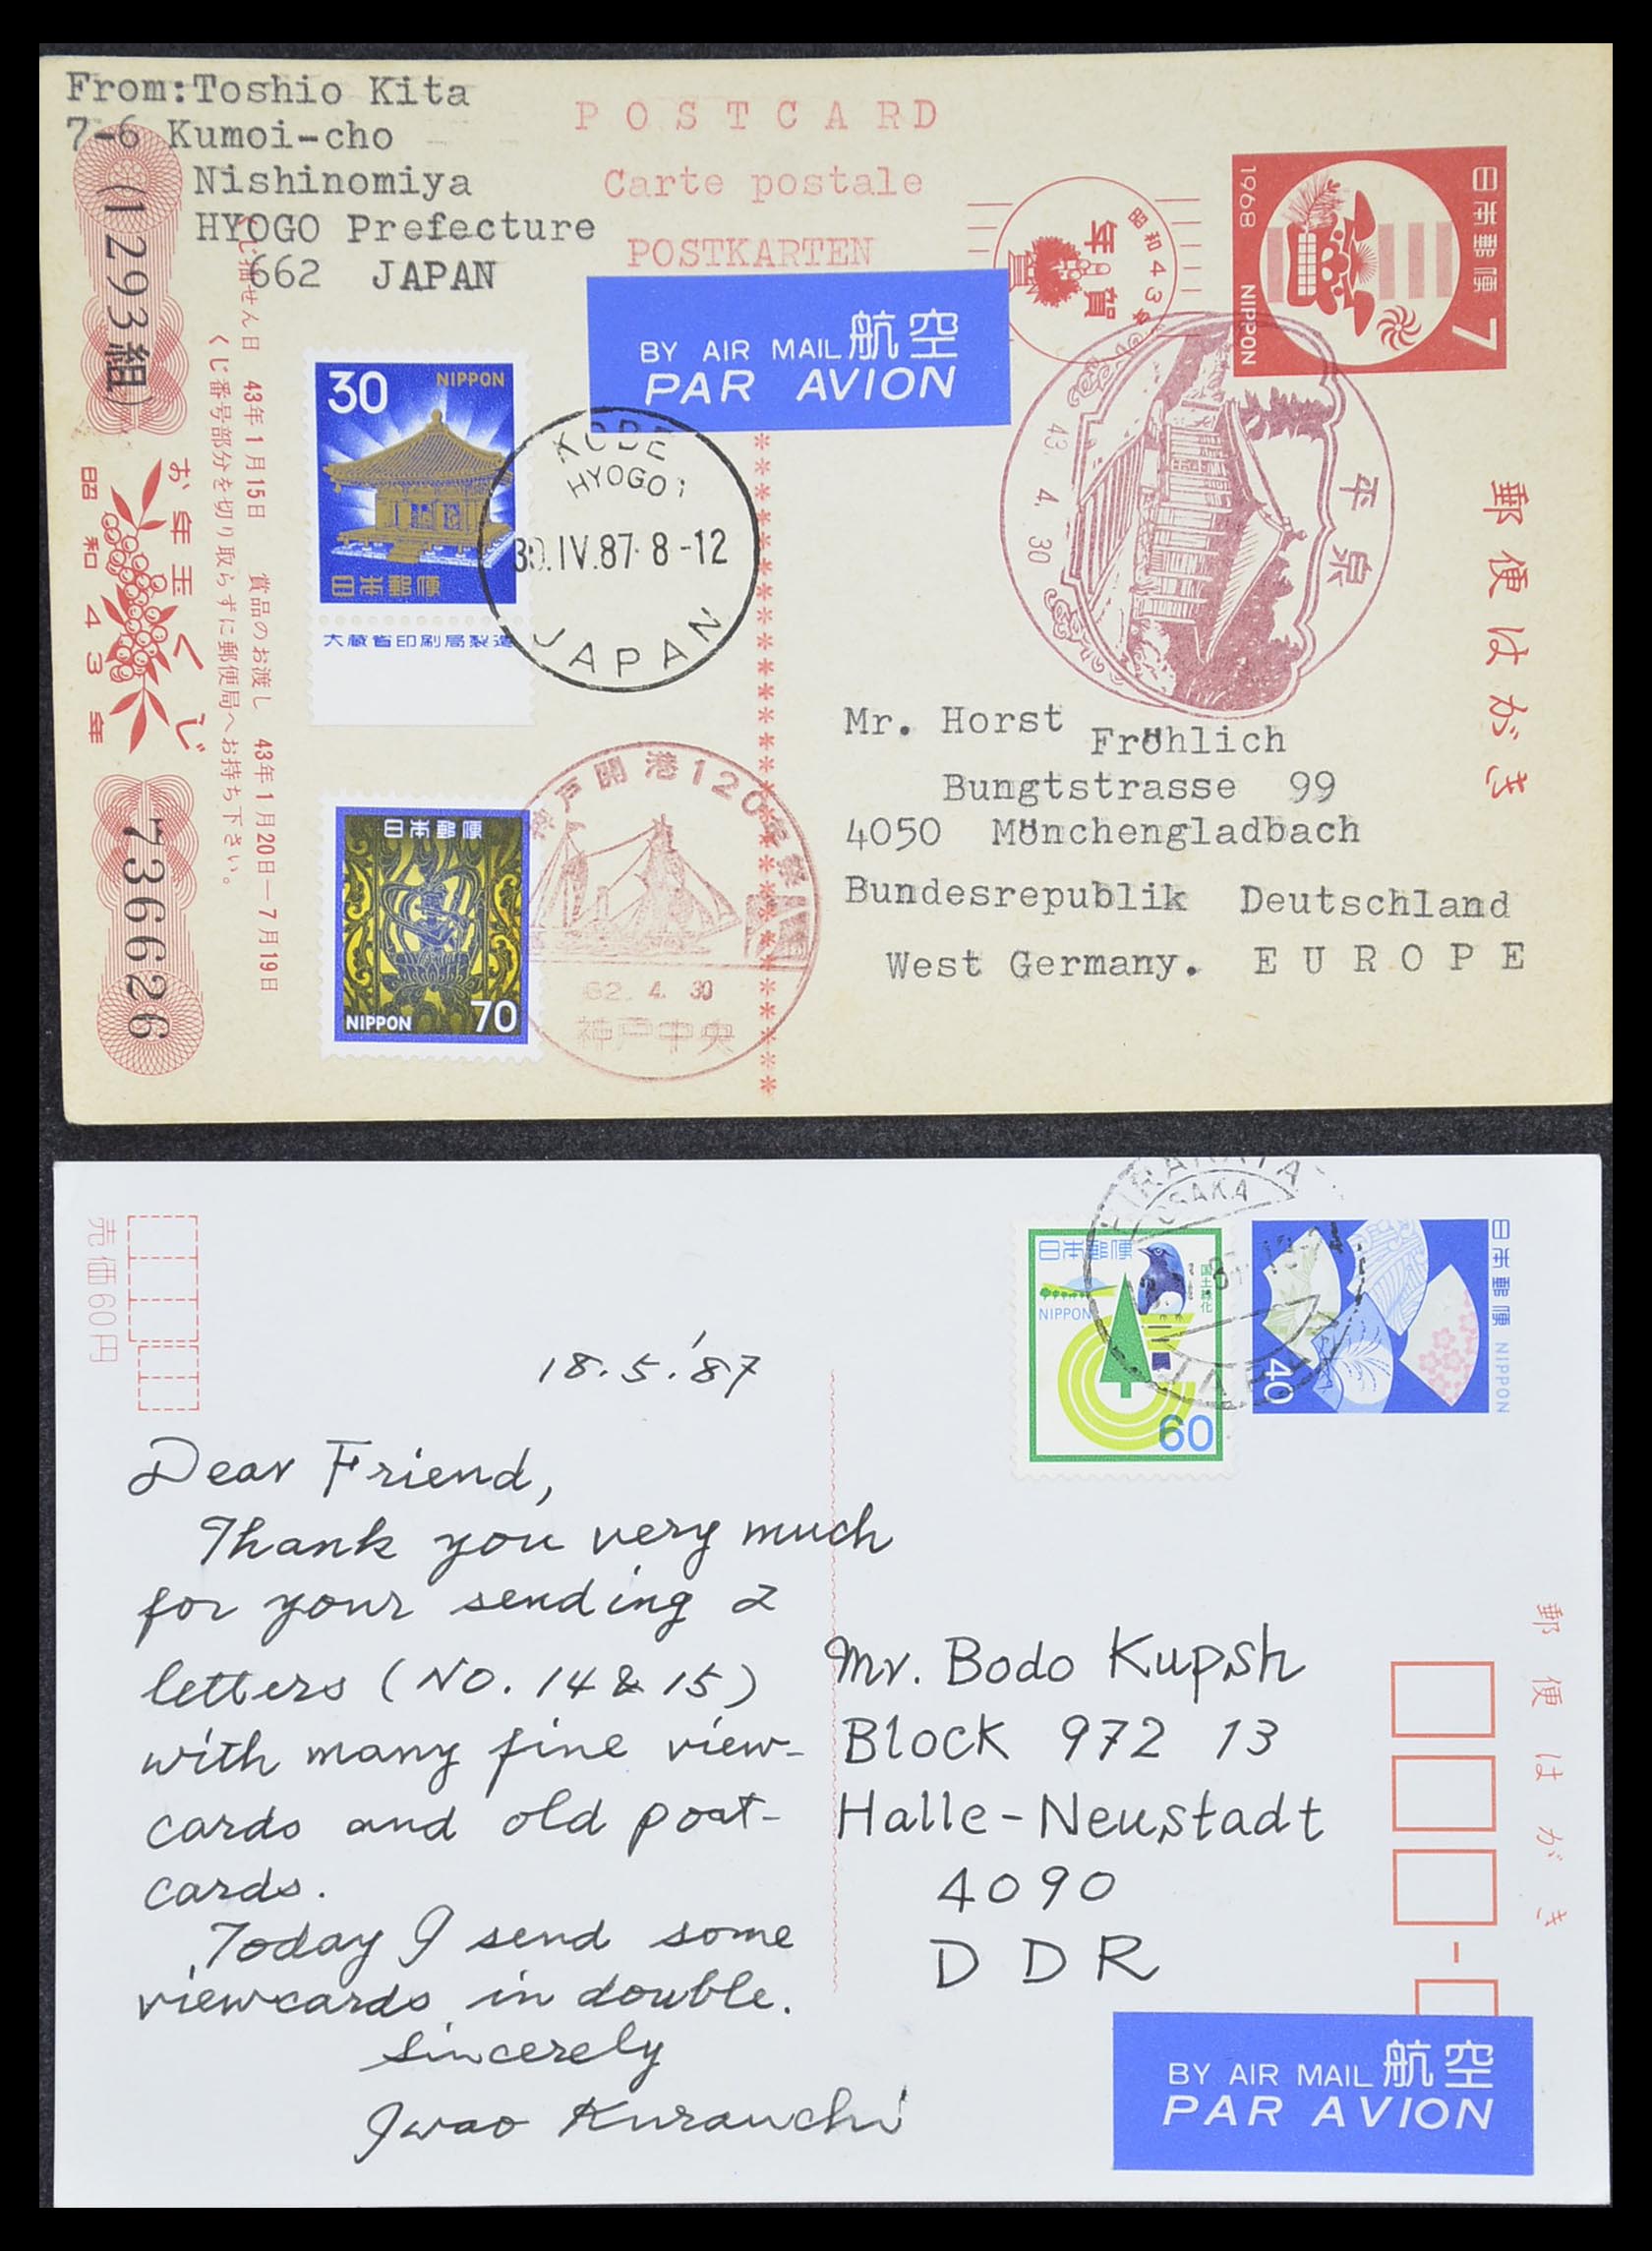 From:Toshio Kita
7-6 Kumoi-cho
Nishinomiya
HYOGO Prefecture
662 JAPAN
POSTCARD
Carte postale
POSTKARTEN
BY AIR MAIL 航空
PAR AVION
昭和43年
年賀
1968
日本郵便
NIPPON
7
郵便はがき
平泉
43. 4. 30
(1293組)
お年玉くじ
昭和43年
736626
くじ抽せん日 43年1月15日 賞品のお渡し 43年1月20日—7月19日
くじ番号部分を切り取らずに郵便局へお持ち下さい。
30 NIPPON
日本郵便
大蔵省印刷局製造
KOBE
HYOGO
30.IV.87. 8-12
JAPAN
日本郵便
NIPPON 70
神戸開港120年祭
62. 4. 30
神戸中央
Mr. Horst Fröhlich
Bungtstrasse 99
4050 Mönchengladbach
Bundesrepublik Deutschland
West Germany. EUROPE
売価60円
OSAKA
日本郵便
国土緑化
NIPPON
60
日本郵便 NIPPON
40
18.5.'87
Dear Friend,
Thank you very much
for your sending 2
letters (NO. 14 & 15)
with many fine view-
cards and old post-
cards.
Today I send some
viewcards in double.
Sincerely
Iwao Kurauchi
Mr. Bodo Kupsh
Block 972 13
Halle-Neustadt
4090
DDR
郵便はがき
BY AIR MAIL 航空
PAR AVION